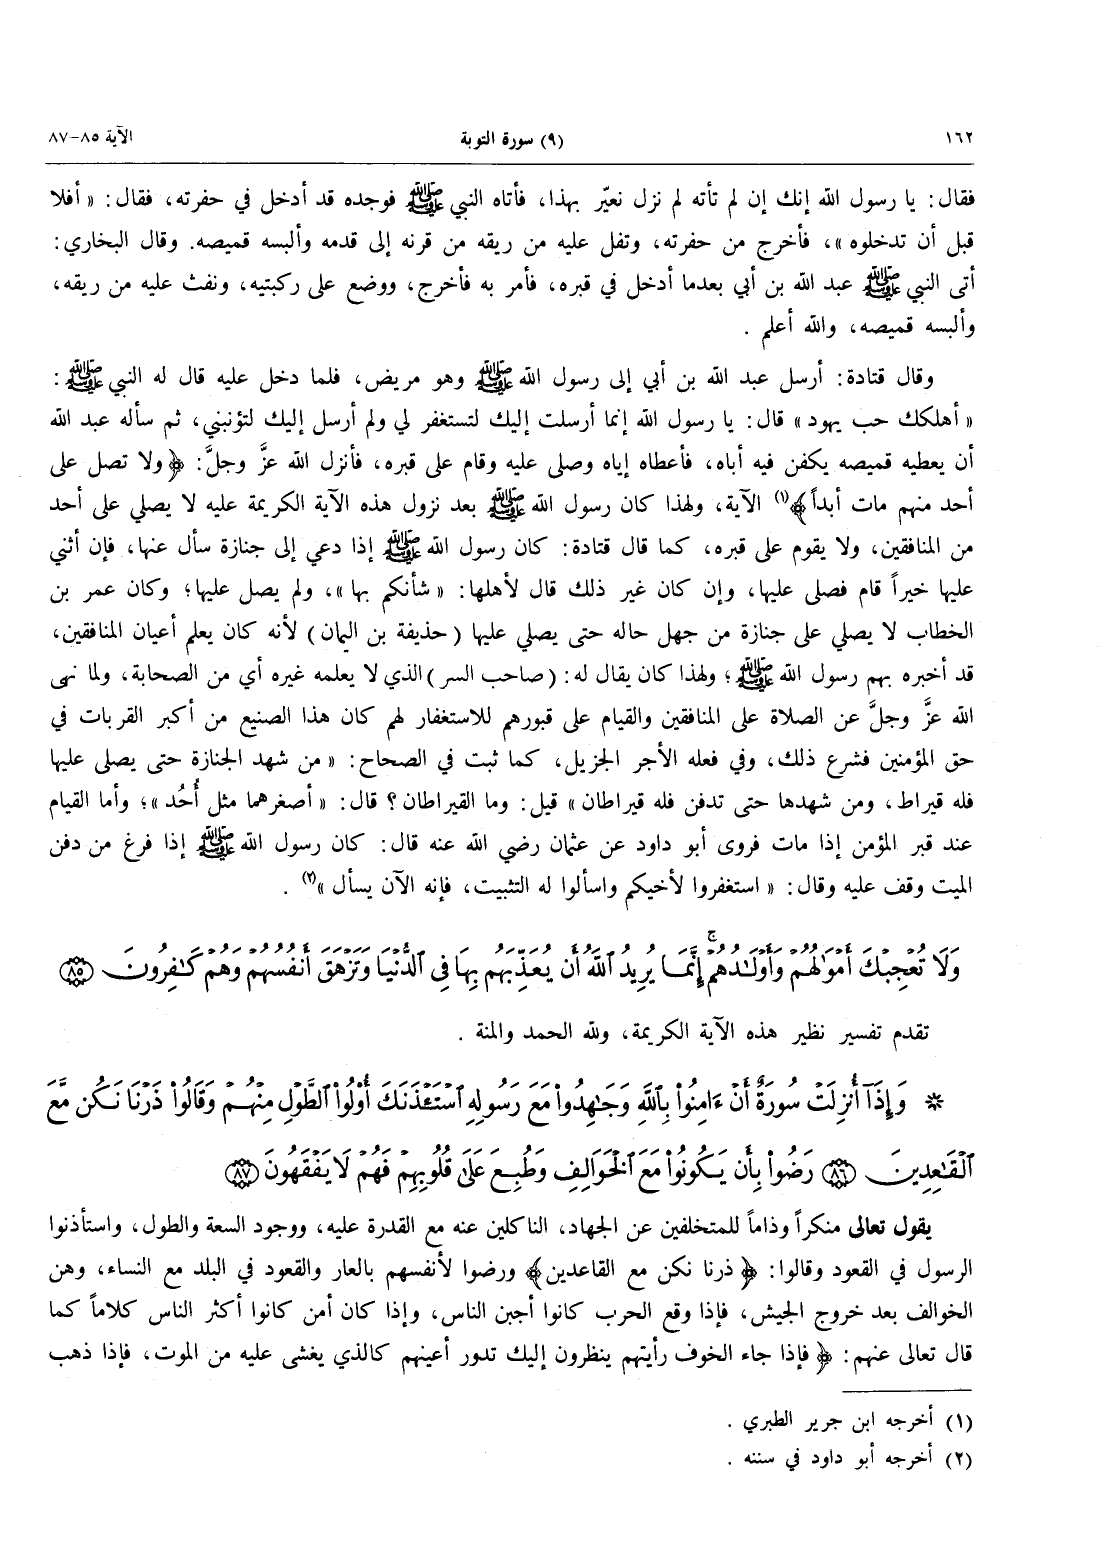 ١٦٢ (٩) سورة التوبة الآية ٨٥-٨٧
فقال: يا رسول الله إنك إن لم تأته لم نزل نعيّر بهذا، فأتاه النبي ﷺ فوجده قد أدخل في حفرته، فقال: « أفلا
قبل أن تدخلوه »، فأخرج من حفرته، وتفل عليه من ريقه من قرنه إلى قدمه وألبسه قميصه. وقال البخاري:
أتى النبي ﷺ عبد الله بن أبي بعدما أدخل في قبره، فأمر به فأخرج، ووضع على ركبتيه، ونفث عليه من ريقه،
وألبسه قميصه، والله أعلم .
وقال قتادة: أرسل عبد الله بن أبي إلى رسول الله ﷺ وهو مريض، فلما دخل عليه قال له النبي ﷺ :
« أهلكك حب يهود » قال: يا رسول الله إنما أرسلت إليك لتستغفر لي ولم أرسل إليك لتؤنبني، ثم سأله عبد الله
أن يعطيه قميصه يكفن فيه أباه، فأعطاه إياه وصلى عليه وقام على قبره، فأنزل الله عزَّ وجلَّ: ﴿ ولا تصل على
أحد منهم مات أبداً ﴾(١) الآية، ولهذا كان رسول الله ﷺ بعد نزول هذه الآية الكريمة عليه لا يصلي على أحد
من المنافقين، ولا يقوم على قبره، كما قال قتادة: كان رسول الله ﷺ إذا دعي إلى جنازة سأل عنها، فإن أثني
عليها خيراً قام فصلى عليها، وإن كان غير ذلك قال لأهلها: « شأنكم بها »، ولم يصل عليها؛ وكان عمر بن
الخطاب لا يصلي على جنازة من جهل حاله حتى يصلي عليها ( حذيفة بن اليمان ) لأنه كان يعلم أعيان المنافقين،
قد أخبره بهم رسول الله ﷺ ؛ ولهذا كان يقال له: ( صاحب السر ) الذي لا يعلمه غيره أي من الصحابة، ولما نهى
الله عزَّ وجلَّ عن الصلاة على المنافقين والقيام على قبورهم للاستغفار لهم كان هذا الصنيع من أكبر القربات في
حق المؤمنين فشرع ذلك، وفي فعله الأجر الجزيل، كما ثبت في الصحاح: « من شهد الجنازة حتى يصلى عليها
فله قيراط، ومن شهدها حتى تدفن فله قيراطان » قيل: وما القيراطان ؟ قال: « أصغرهما مثل أُحُد »؛ وأما القيام
عند قبر المؤمن إذا مات فروى أبو داود عن عثمان رضي الله عنه قال: كان رسول الله ﷺ إذا فرغ من دفن
الميت وقف عليه وقال: « استغفروا لأخيكم واسألوا له التثبيت، فإنه الآن يسأل »(٢) .
وَلَا تُعْجِبْكَ أَمْوَٰلُهُمْ وَأَوْلَٰدُهُمْ ۚ إِنَّمَا يُرِيدُ ٱللَّهُ أَن يُعَذِّبَهُم بِهَا فِى ٱلدُّنْيَا وَتَزْهَقَ أَنفُسُهُمْ وَهُمْ كَٰفِرُونَ ۝٨٥
تقدم تفسير نظير هذه الآية الكريمة، ولله الحمد والمنة .
* وَإِذَآ أُنزِلَتْ سُورَةٌ أَنْ ءَامِنُوا۟ بِٱللَّهِ وَجَٰهِدُوا۟ مَعَ رَسُولِهِ ٱسْتَـْٔذَنَكَ أُو۟لُوا۟ ٱلطَّوْلِ مِنْهُمْ وَقَالُوا۟ ذَرْنَا نَكُن مَّعَ
ٱلْقَٰعِدِينَ ۝٨٦ رَضُوا۟ بِأَن يَكُونُوا۟ مَعَ ٱلْخَوَالِفِ وَطُبِعَ عَلَىٰ قُلُوبِهِمْ فَهُمْ لَا يَفْقَهُونَ ۝٨٧
يقول تعالى منكراً وذاماً للمتخلفين عن الجهاد، الناكلين عنه مع القدرة عليه، ووجود السعة والطول، واستأذنوا
الرسول في القعود وقالوا: ﴿ ذرنا نكن مع القاعدين ﴾ ورضوا لأنفسهم بالعار والقعود في البلد مع النساء، وهن
الخوالف بعد خروج الجيش، فإذا وقع الحرب كانوا أجبن الناس، وإذا كان أمن كانوا أكثر الناس كلاماً كما
قال تعالى عنهم: ﴿ فإذا جاء الخوف رأيتهم ينظرون إليك تدور أعينهم كالذي يغشى عليه من الموت، فإذا ذهب
(١) أخرجه ابن جرير الطبري .
(٢) أخرجه أبو داود في سننه .